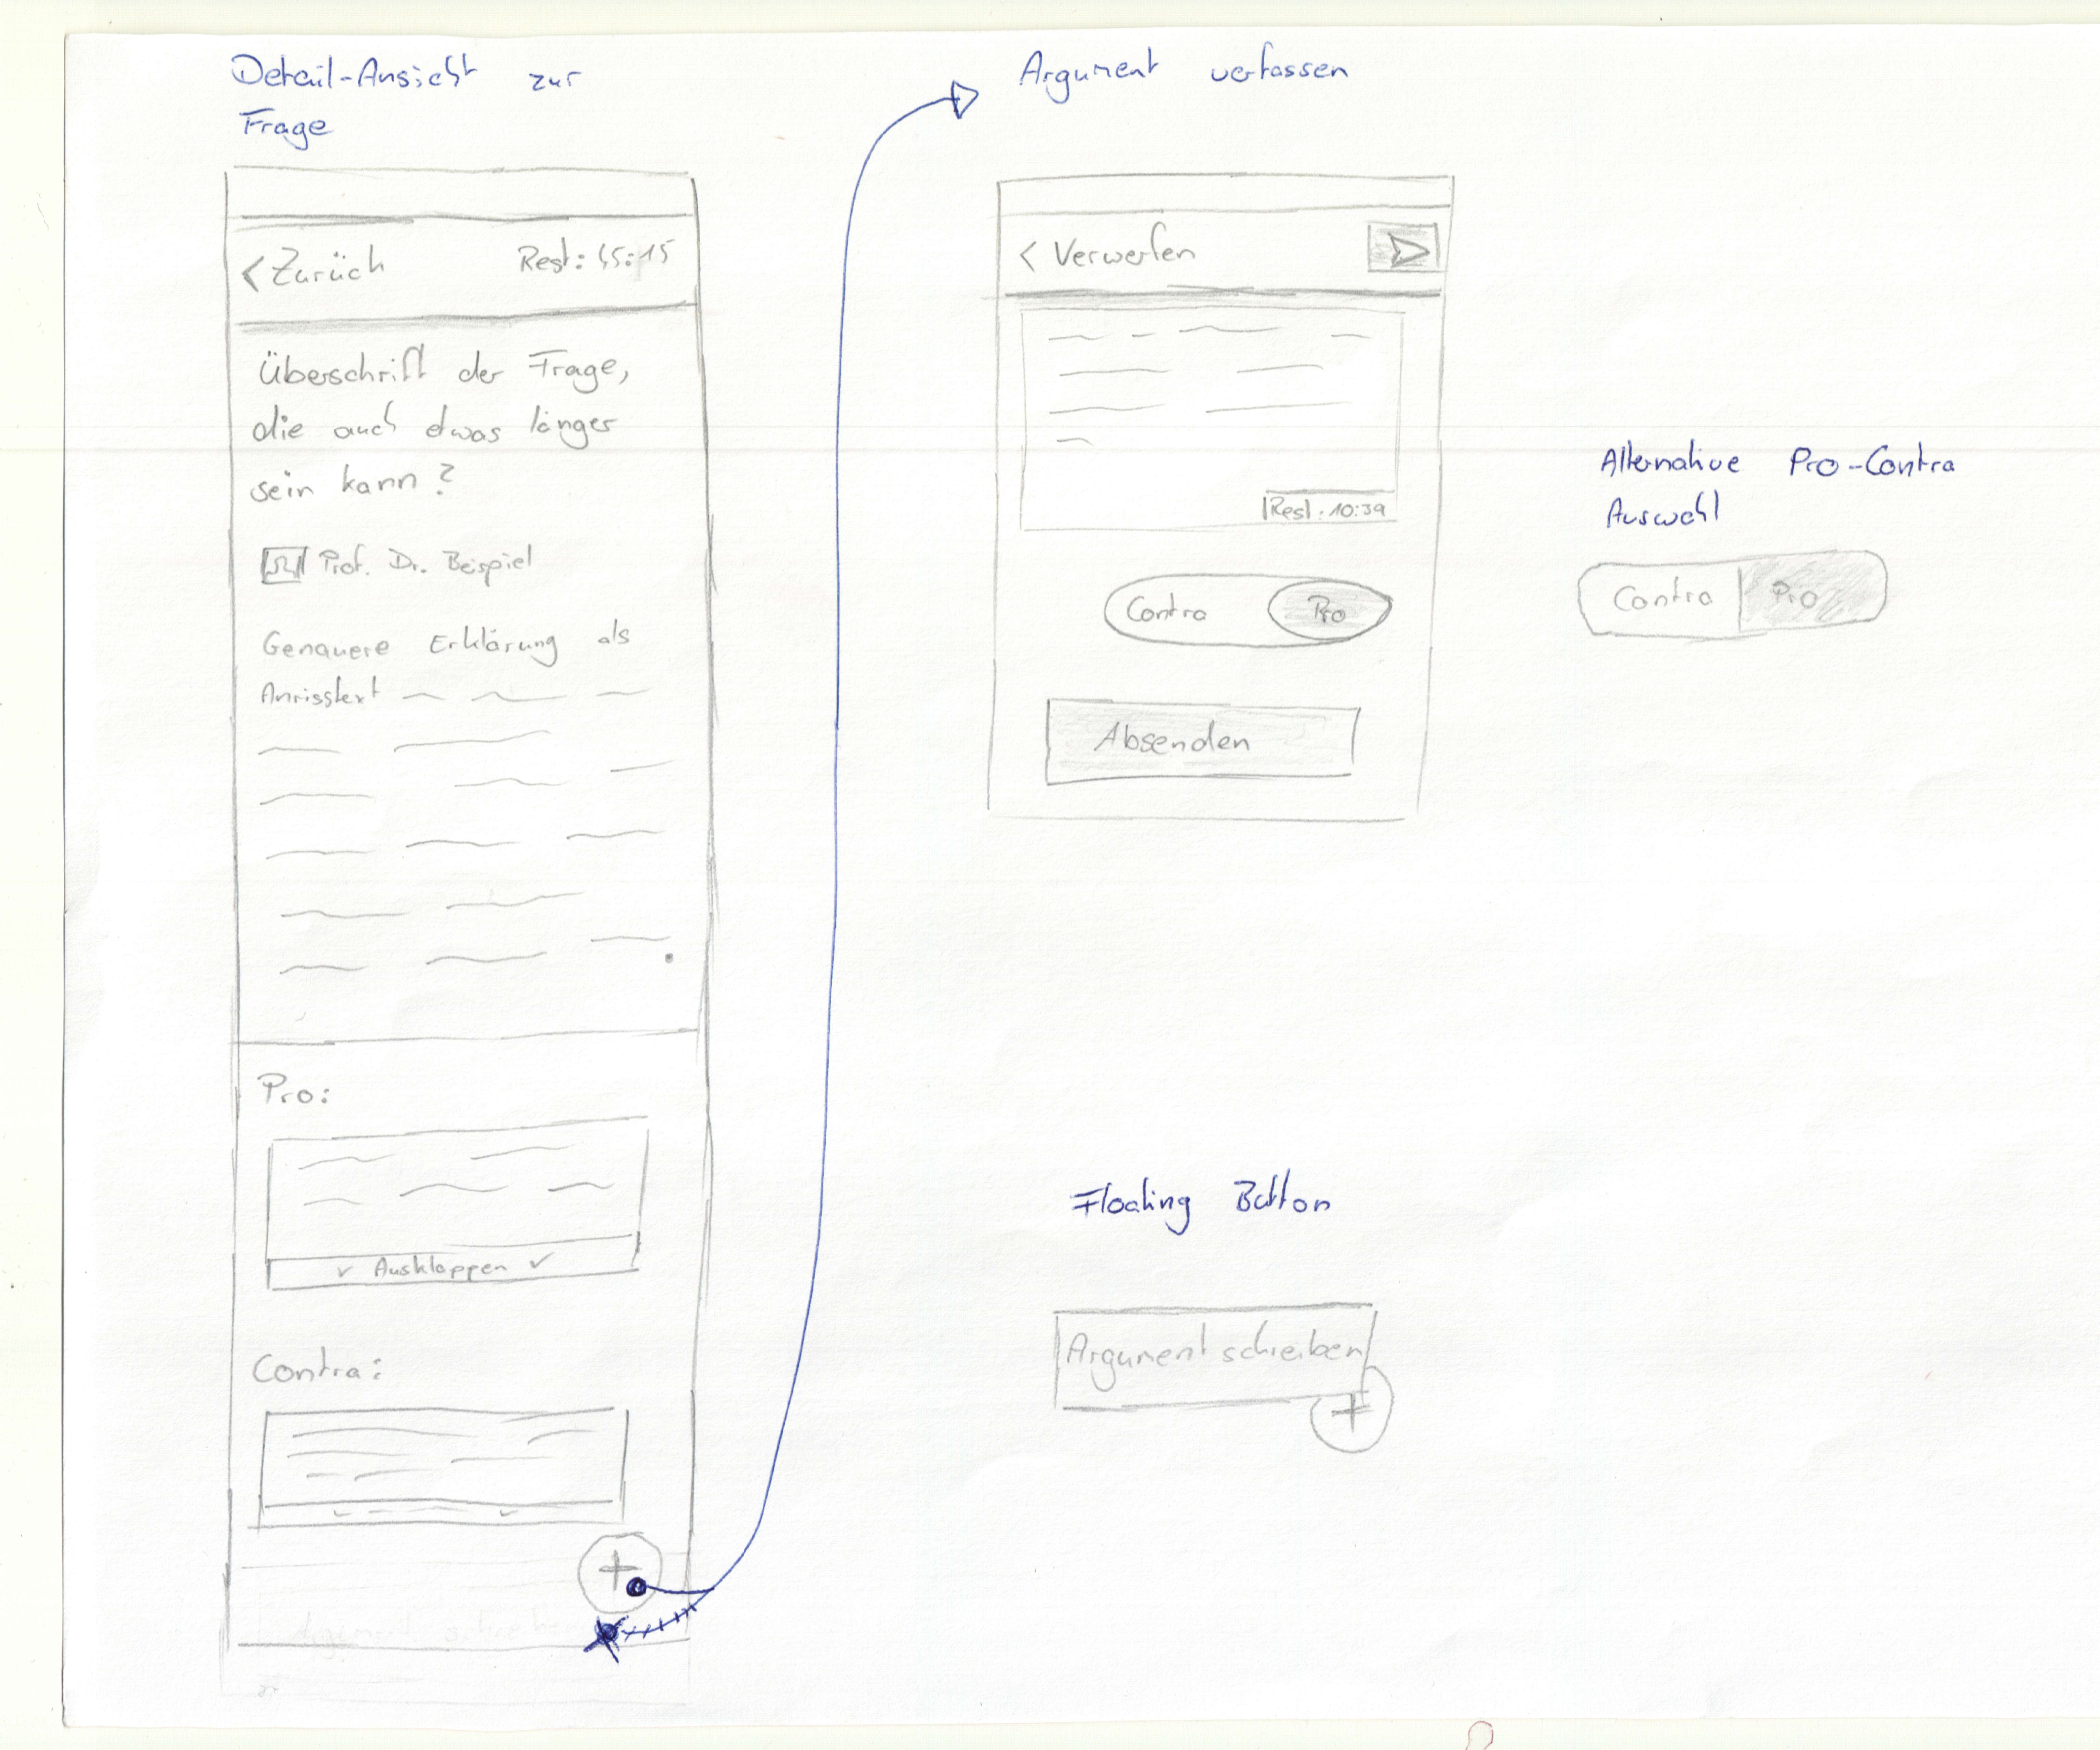 Detail-Ansicht zur
Frage
< Zurück Rest: 45:15
Überschrift der Frage,
die auch etwas länger
sein kann?
Prof. Dr. Beispiel
Genauere Erklärung als
Anrisstext
Pro:
Ausklappen
Contra:
+
Argument verfassen
< Verwerfen
Rest: 10:39
Contra Pro
Absenden
Alternative Pro-Contra
Auswahl
Contra Pro
Floating Button
Argument schreiben
+